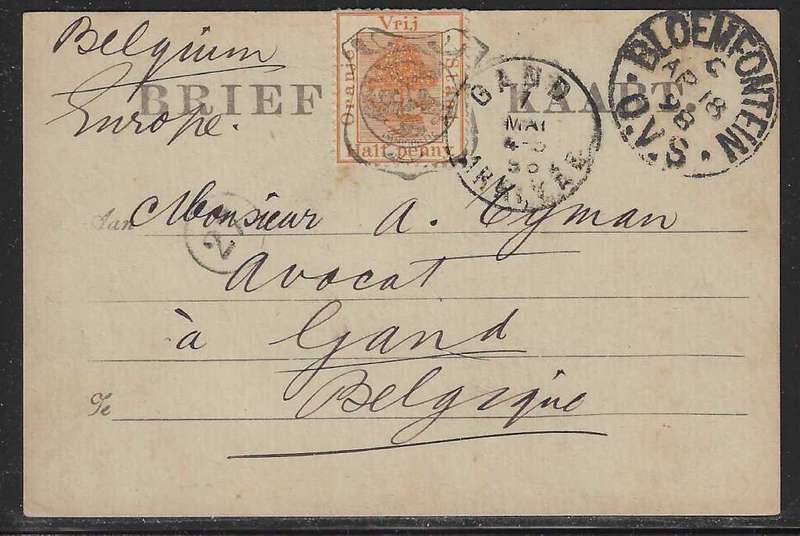 Belgium
Europe.
BRIEF KAART.
Vrij
Oranje Staat
Half penny
GAND
7
MAI
4-5
98
BLOEMFONTEIN
C
AP 18
98
O.V.S.
Aan Monsieur A. Eyman
Avocat
à Gand
Te Belgique